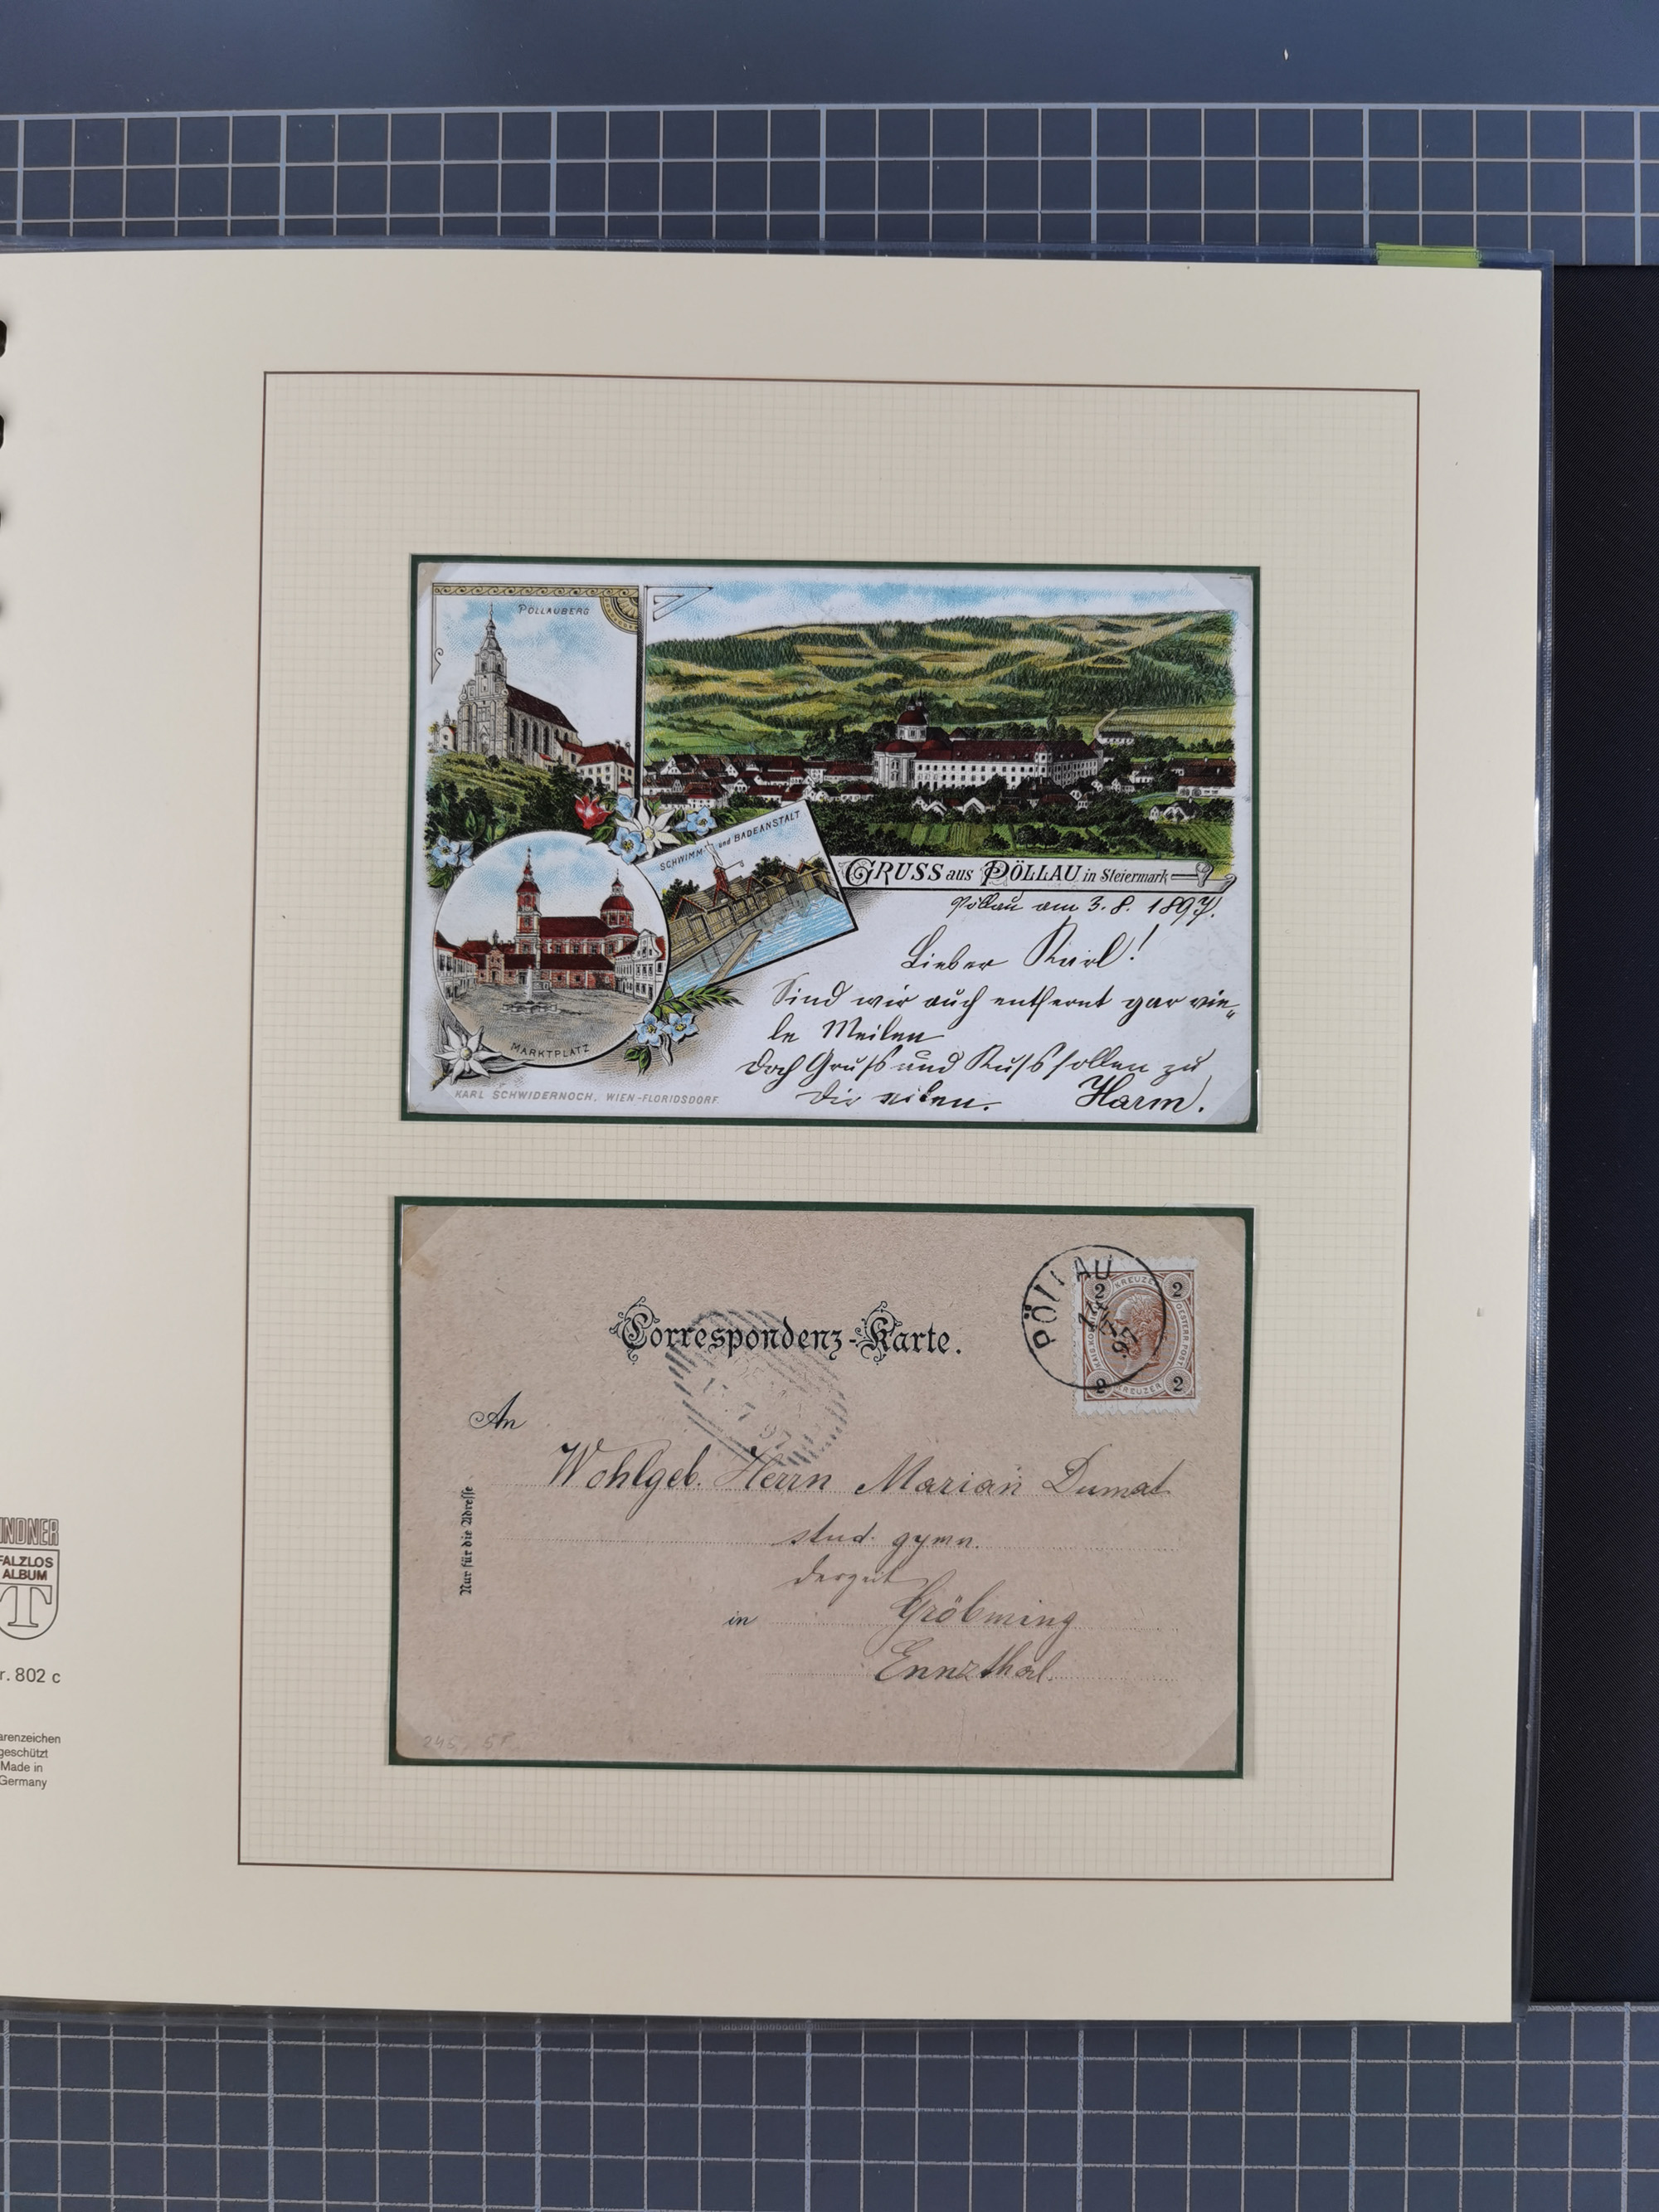 PÖLLAUBERG
SCHWIMM- und BADEANSTALT
GRUSS aus PÖLLAU in Steiermark
MARKTPLATZ
KARL SCHWIDERNOCH, WIEN-FLORIDSDORF.
Pöllau am 3. 8. 1897.
Lieber Karl!
Sind wir auch entfernt gar vie„
le Meilen
doch Gruß und Kuß sollen zu
Dir eilen. Harm.
PÖLLAU
97
2 KREUZER 2
OESTERR. POST
2 KREUZER 2
Correspondenz-Karte.
97
An
Wohlgeb. Herrn Marian Dumat
stud. gymn.
Nur für die Adresse
in Gröbming
Ennzthal.
LINDNER
FALZLOS
ALBUM
T
r. 802 c
arenzeichen
geschützt
Made in
Germany